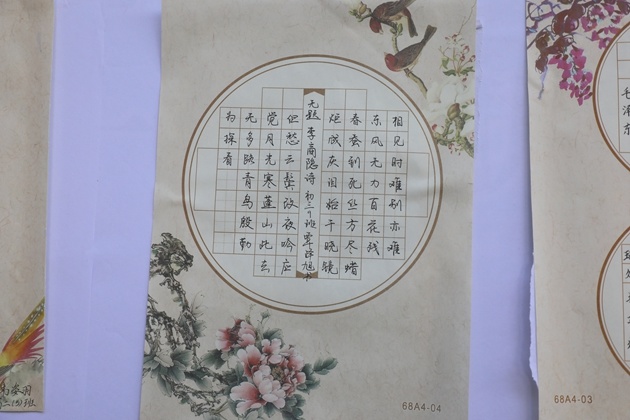 相见时难别亦难
东风无力百花残
春蚕到死丝方尽蜡
炬成灰泪始干晓镜
无题 李商隐诗 初三 班 旭书
但愁云鬓改夜吟应
觉月光寒蓬山此去
无多路青鸟殷勤
为探看
68A4-04
毛泽东
68A4-03